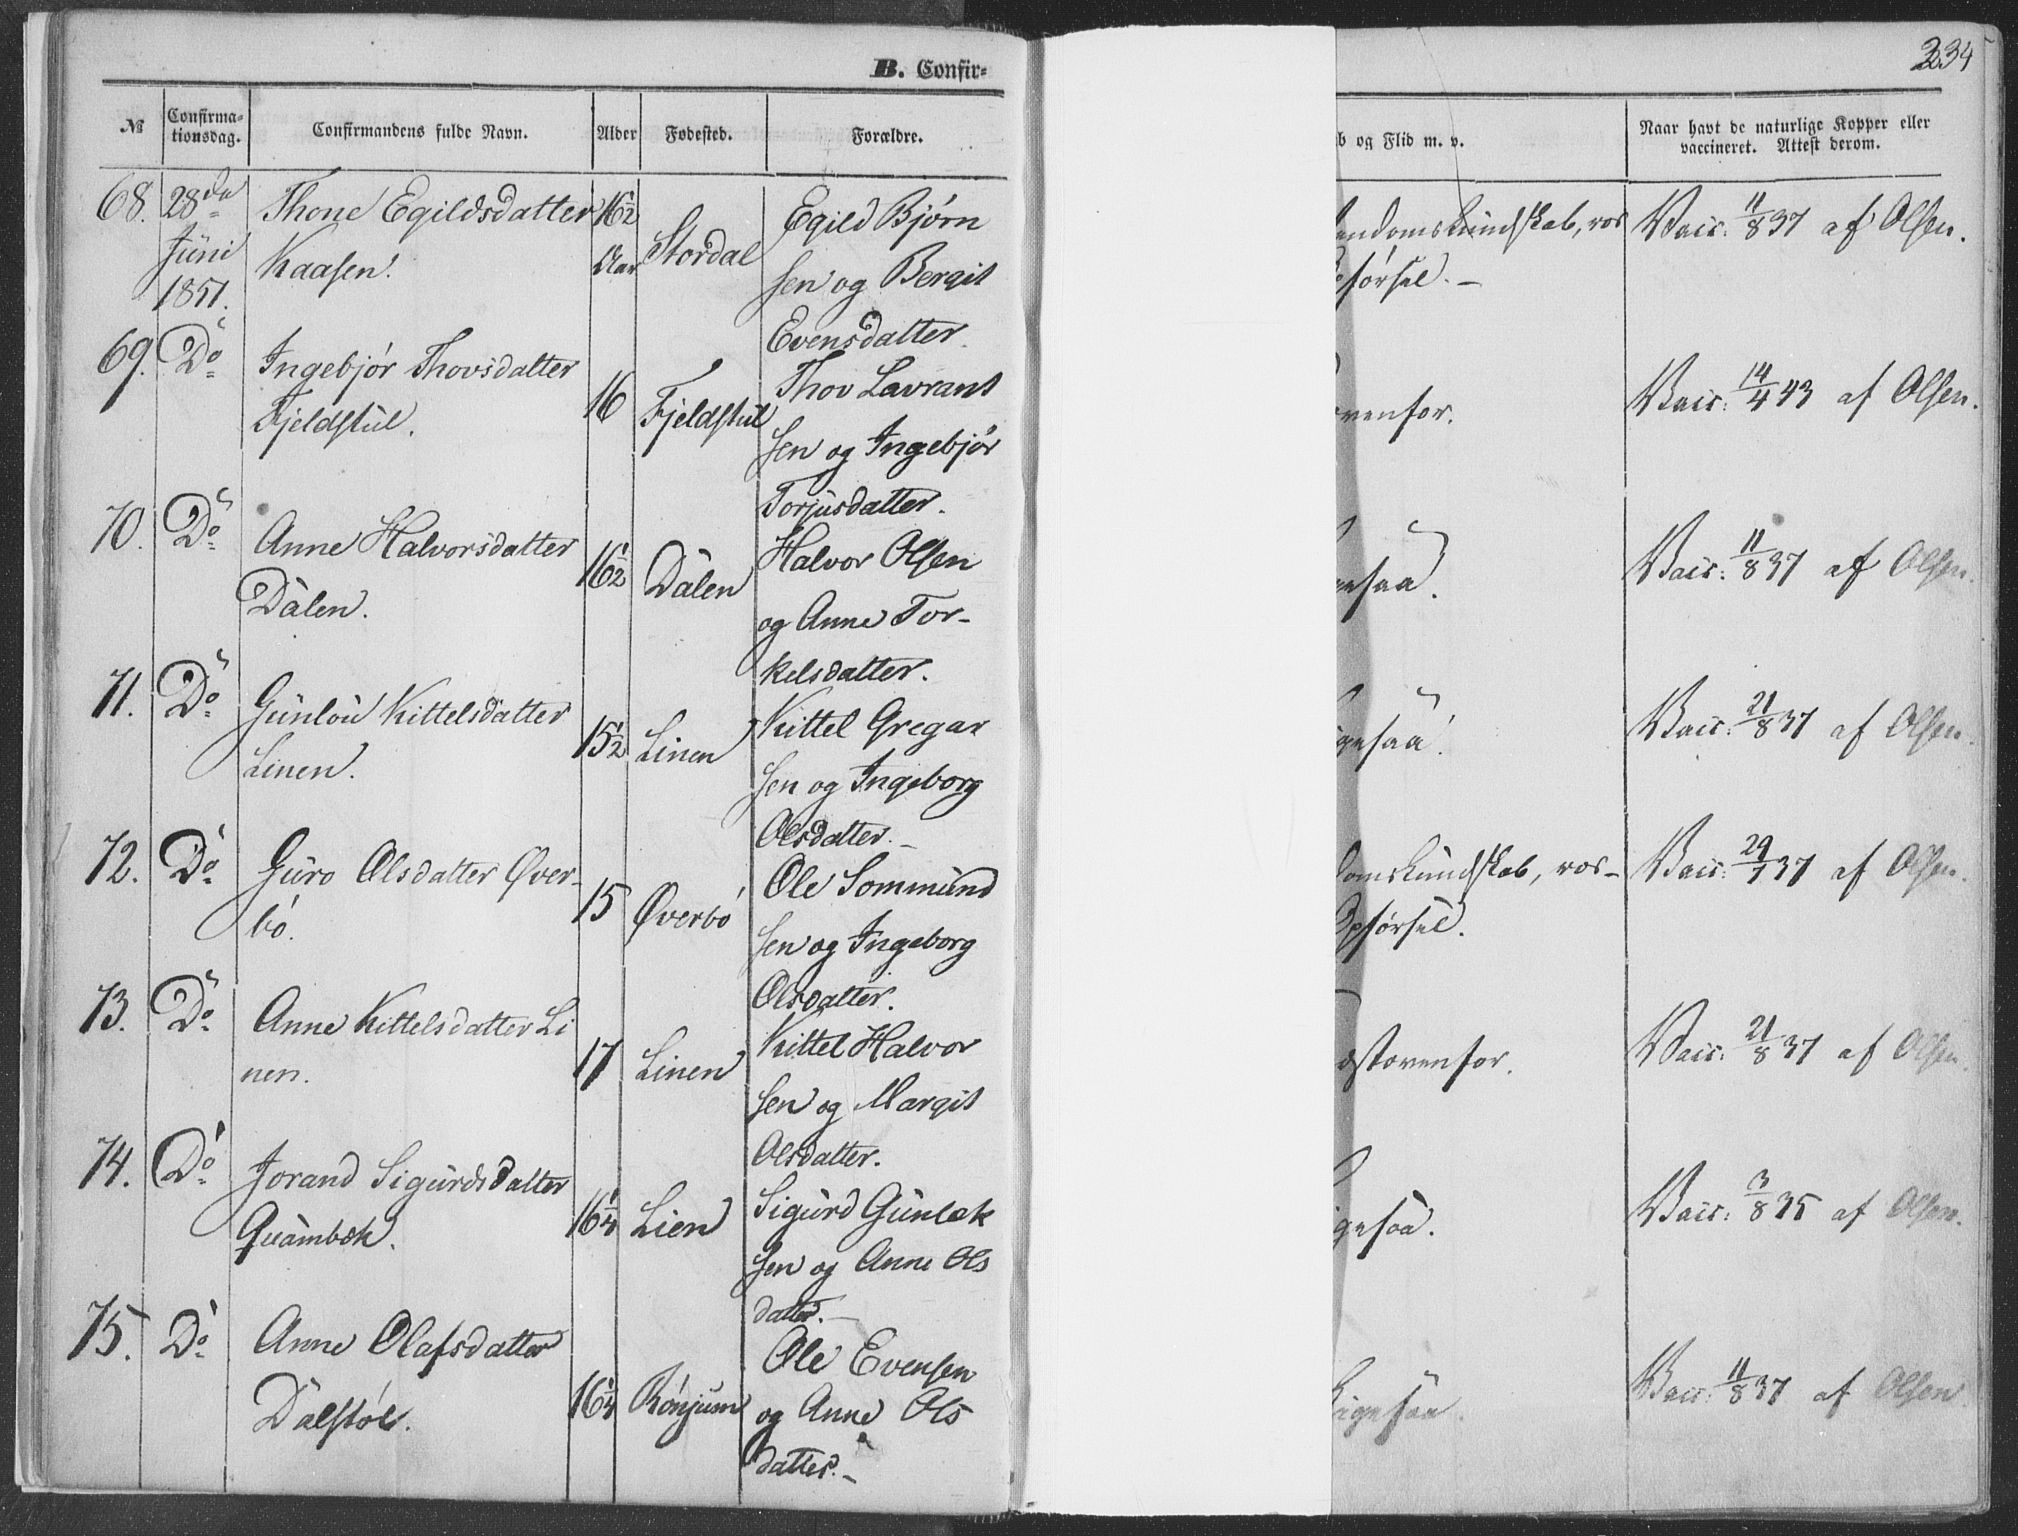 B. Confir-
234
№ Confirma-tionsdag. Confirmandens fulde Navn. Alder Fødested. Forældre.
b og Flid m. v. Naar havt de naturlige Kopper eller vaccineret. Attest derom.
68. 28de Thone Egildsdatter 16½ Stordal Egild Bjørn
Juni Kaasen. Aar sen og Bergit
1851. Evensdatter.
endomskundskab, vos Vacc: 11/8 37 af Olsen.
førsel. —
69. Do Ingebjør Thovsdatter 16 Fjeldstul Thov Lavrant
Fjeldstul. sen og Ingebjør
Torjusdatter.
ovenfor. Vacc: 14/4 43 af Olsen.
70. Do Anne Halvorsdatter 16½ Dalen Halvor Olsen
Dalen. og Anne Tor-
kelsdatter.
gesaa. Vacc: 11/8 37 af Olsen.
71. Do Gunlou Kittelsdatter 15½ Linen Kittel Gregar
Linen. sen og Ingeborg
Olsdatter. —
igesaa. Vacc: 21/8 37 af Olsen.
72. Do Guro Olsdatter Øver- 15 Øverbø Ole Sommund
bø. sen og Ingeborg
Olsdatter.
domskundskab, vos- Vacc: 29/7 37 af Olsen.
Opførsel.
73. Do Anne Kittelsdatter Li 17 Linen Kittel Halvor
nen. sen og Margit
Olsdatter.
stovenfor. Vacc: 21/8 37 af Olsen.
74. Do Jorand Sigurdsdatter 16¼ Lien Sigurd Gunlæk
Quambæk. sen og Anne Ols
datter. —
igesaa. Vacc: 3/8 35 af Olsen.
75. Do Anne Olafsdatter 16¼ Rønjum Ole Evensen
Dalstøl. og Anne Ols
datter. —
Ligesaa. Vacc: 11/8 37 af Olsen.